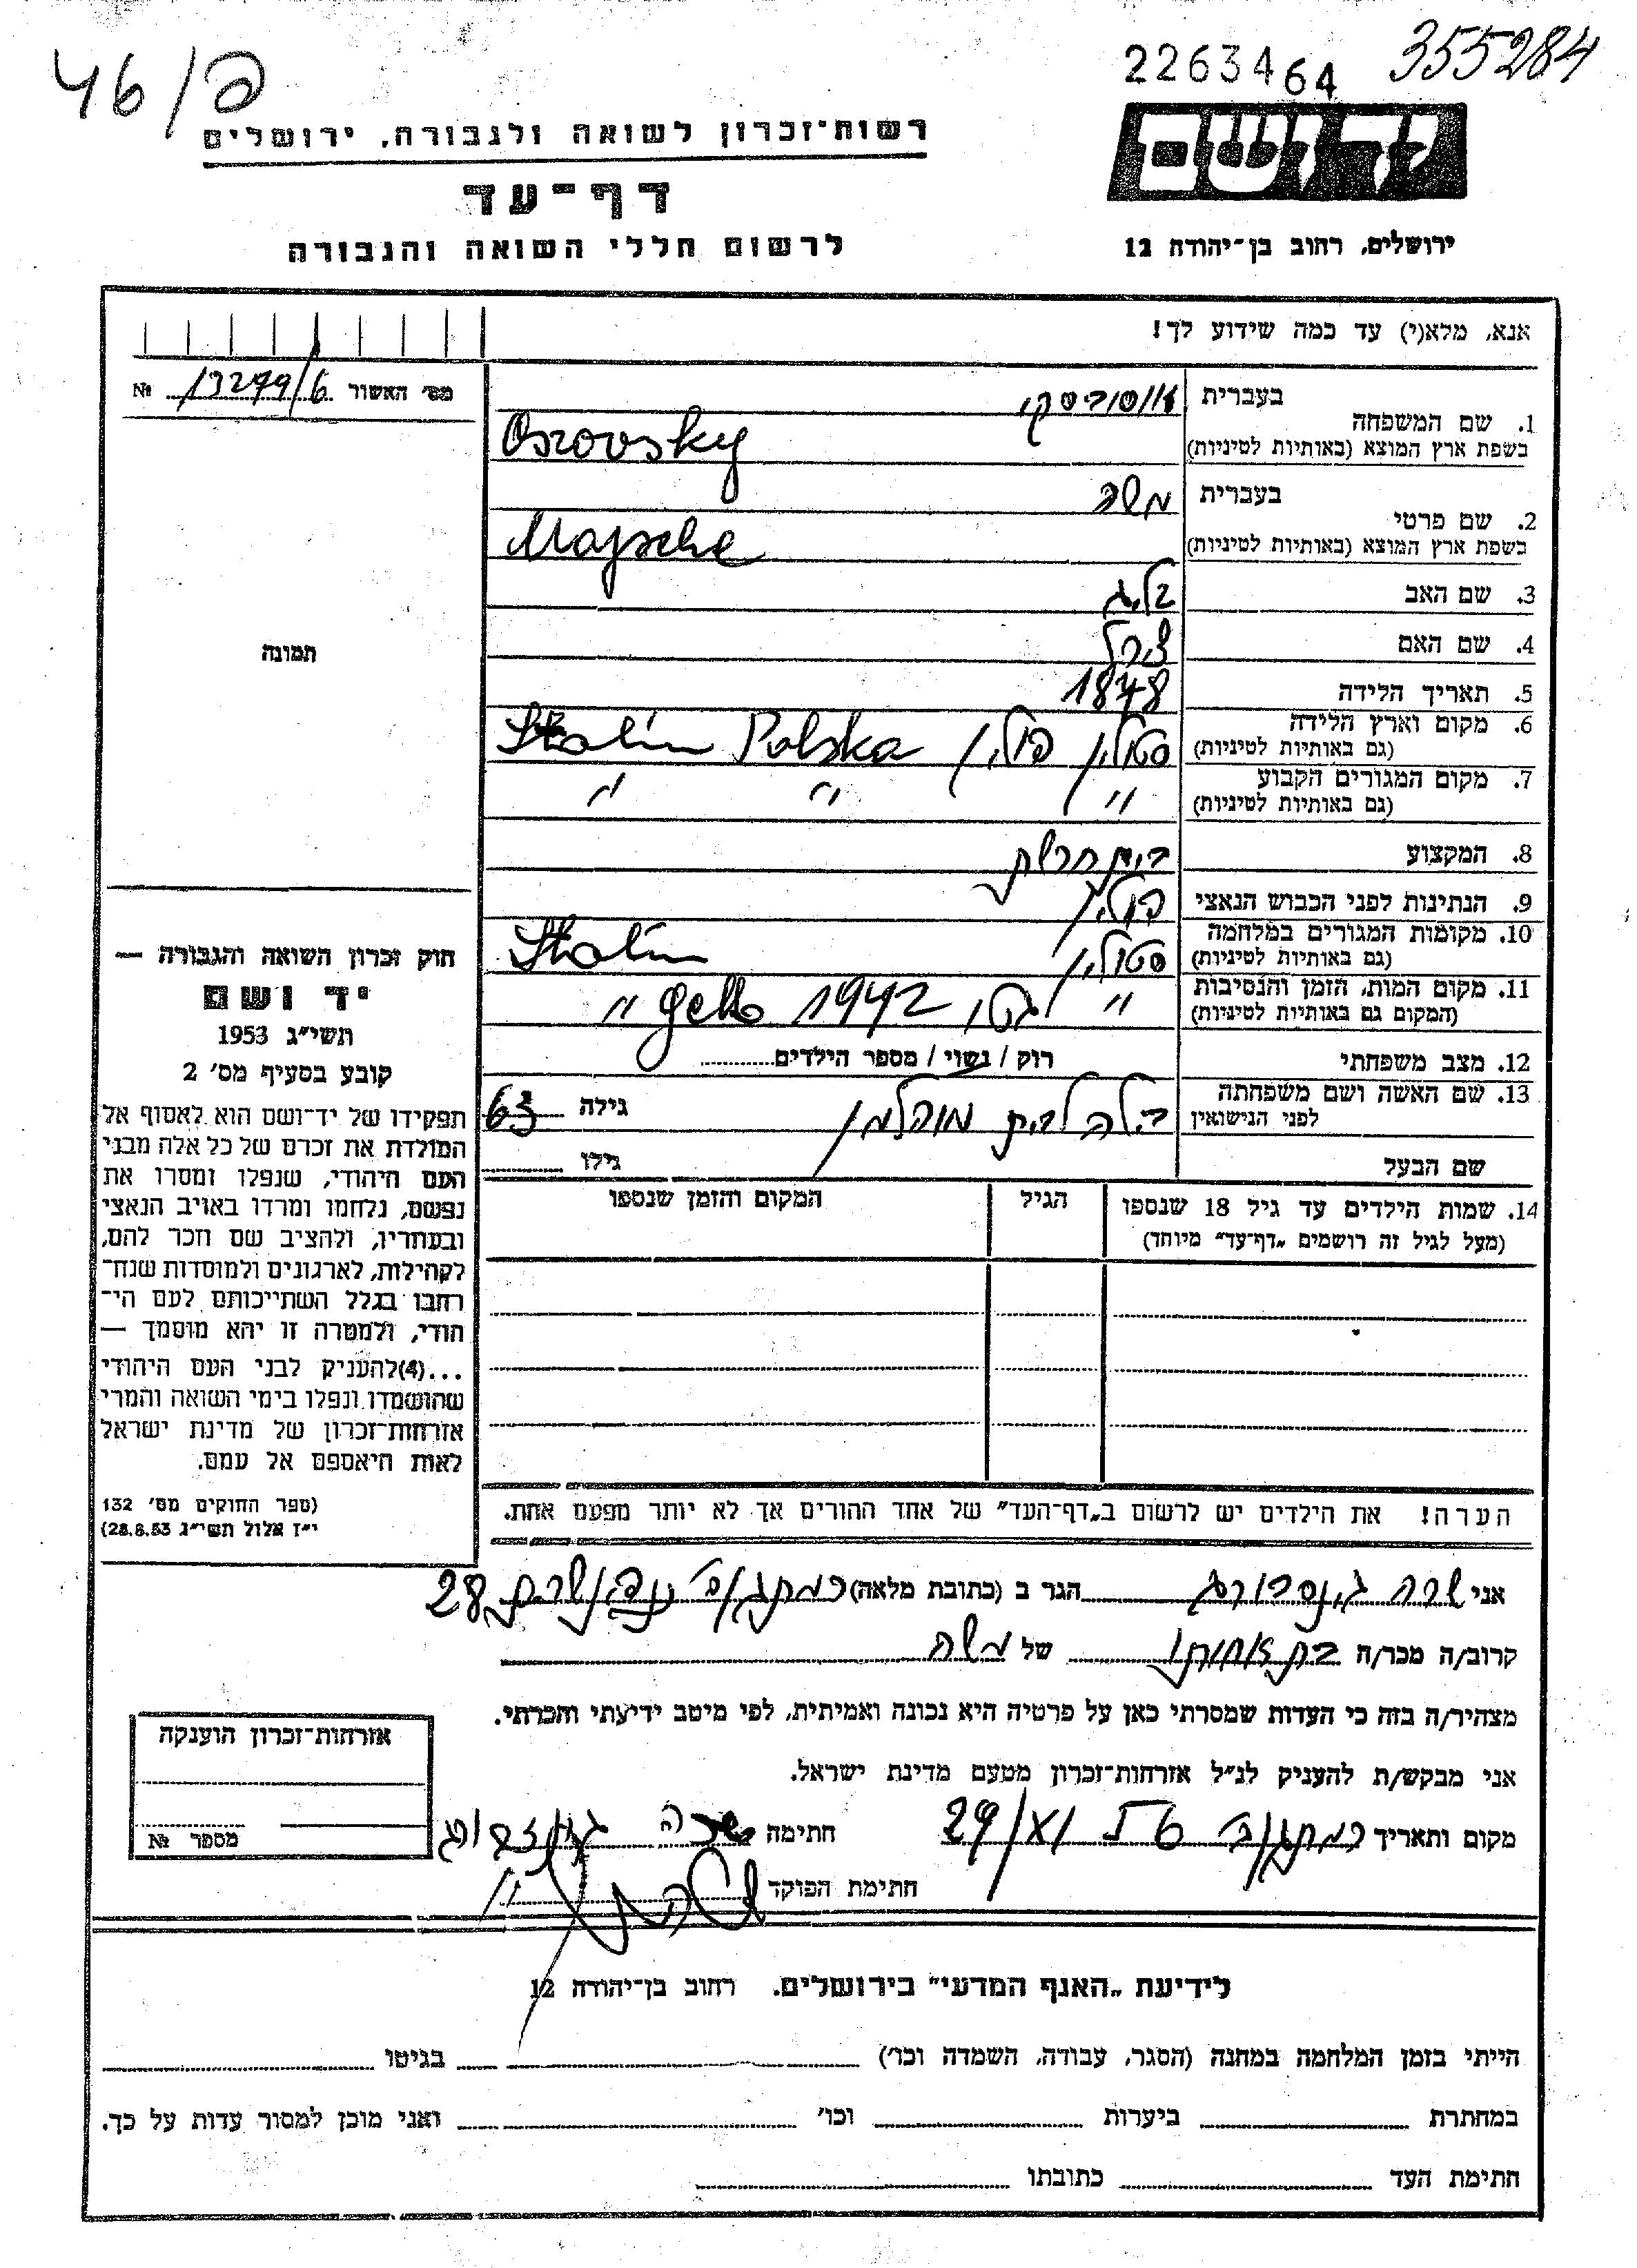 46/פ
2263464 355284
יד ושם
רשות־זכרון לשואה ולגבורה, ירושלים
דף־עד
לרשום חללי השואה והגבורה
ירושלים, רחוב בן־יהודה 12
אנא, מלא(י) עד כמה שידוע לך!
מס׳ האשור 13279/6 №
תמונה
1. שם המשפחה
בעברית
בשפת ארץ המוצא (באותיות לטיניות) Oszovsky
2. שם פרטי
בעברית משה
בשפת ארץ המוצא (באותיות לטיניות) Mojsche
3. שם האב
4. שם האם
5. תאריך הלידה 1878
6. מקום וארץ הלידה
(גם באותיות לטיניות) סטולין פולין Stolin Polska
7. מקום המגורים הקבוע
(גם באותיות לטיניות) " " "
8. המקצוע בית חרשת
9. הנתינות לפני הכבוש הנאצי פולין
10. מקומות המגורים במלחמה
(גם באותיות לטיניות) סטולין Stolin
11. מקום המות, הזמן והנסיבות
(המקום גם באותיות לטיניות) " גטו 1942 getto "
12. מצב משפחתי רוק / נשוי / מספר הילדים
13. שם האשה ושם משפחתה
לפני הנישואין בילה לבית גילה 63
שם הבעל גילו
14. שמות הילדים עד גיל 18 שנספו
(מעל לגיל זה רושמים „דף־עד״ מיוחד)
הגיל
המקום והזמן שנספו
חוק זכרון השואה והגבורה —
יד ושם
תשי״ג 1953
קובע בסעיף מס׳ 2
תפקידו של יד־ושם הוא לאסוף אל
המולדת את זכרם של כל אלה מבני
העם היהודי, שנפלו ומסרו את
נפשם, נלחמו ומרדו באויב הנאצי
ובעוזריו, ולהציב שם וזכר להם,
לקהילות, לארגונים ולמוסדות שנח־
רבו בגלל השתייכותם לעם הי־
הודי, ולמטרה זו יהא מוסמך —
...(4)להעניק לבני העם היהודי
שהושמדו ונפלו בימי השואה והמרי
אזרחות־זכרון של מדינת ישראל
לאות היאספם אל עמם.
(ספר החוקים מס׳ 132
י״ז אלול תשי״ג 28.8.53)
הערה! את הילדים יש לרשום ב„דף־העד״ של אחד ההורים אך לא יותר מפעם אחת.
אני שרה הגר ב (כתובת מלאה) 28
קרוב/ה מכר/ה בת אחותו של משה
מצהיר/ה בזה כי העדות שמסרתי כאן על פרטיה היא נכונה ואמיתית, לפי מיטב ידיעתי והכרתי.
אני מבקש/ת להעניק לנ״ל אזרחות־זכרון מטעם מדינת ישראל.
מקום ותאריך חתימה שרה
חתימת הפוקד
אזרחות־זכרון הוענקה
מספר №
לידיעת „האנף המדעי״ בירושלים. רחוב בן־יהודה 12
הייתי בזמן המלחמה במחנה (הסגר, עבודה, השמדה וכו׳) בגיטו
במחתרת ביערות וכו׳ ואני מוכן למסור עדות על כך.
חתימת העד כתובתו